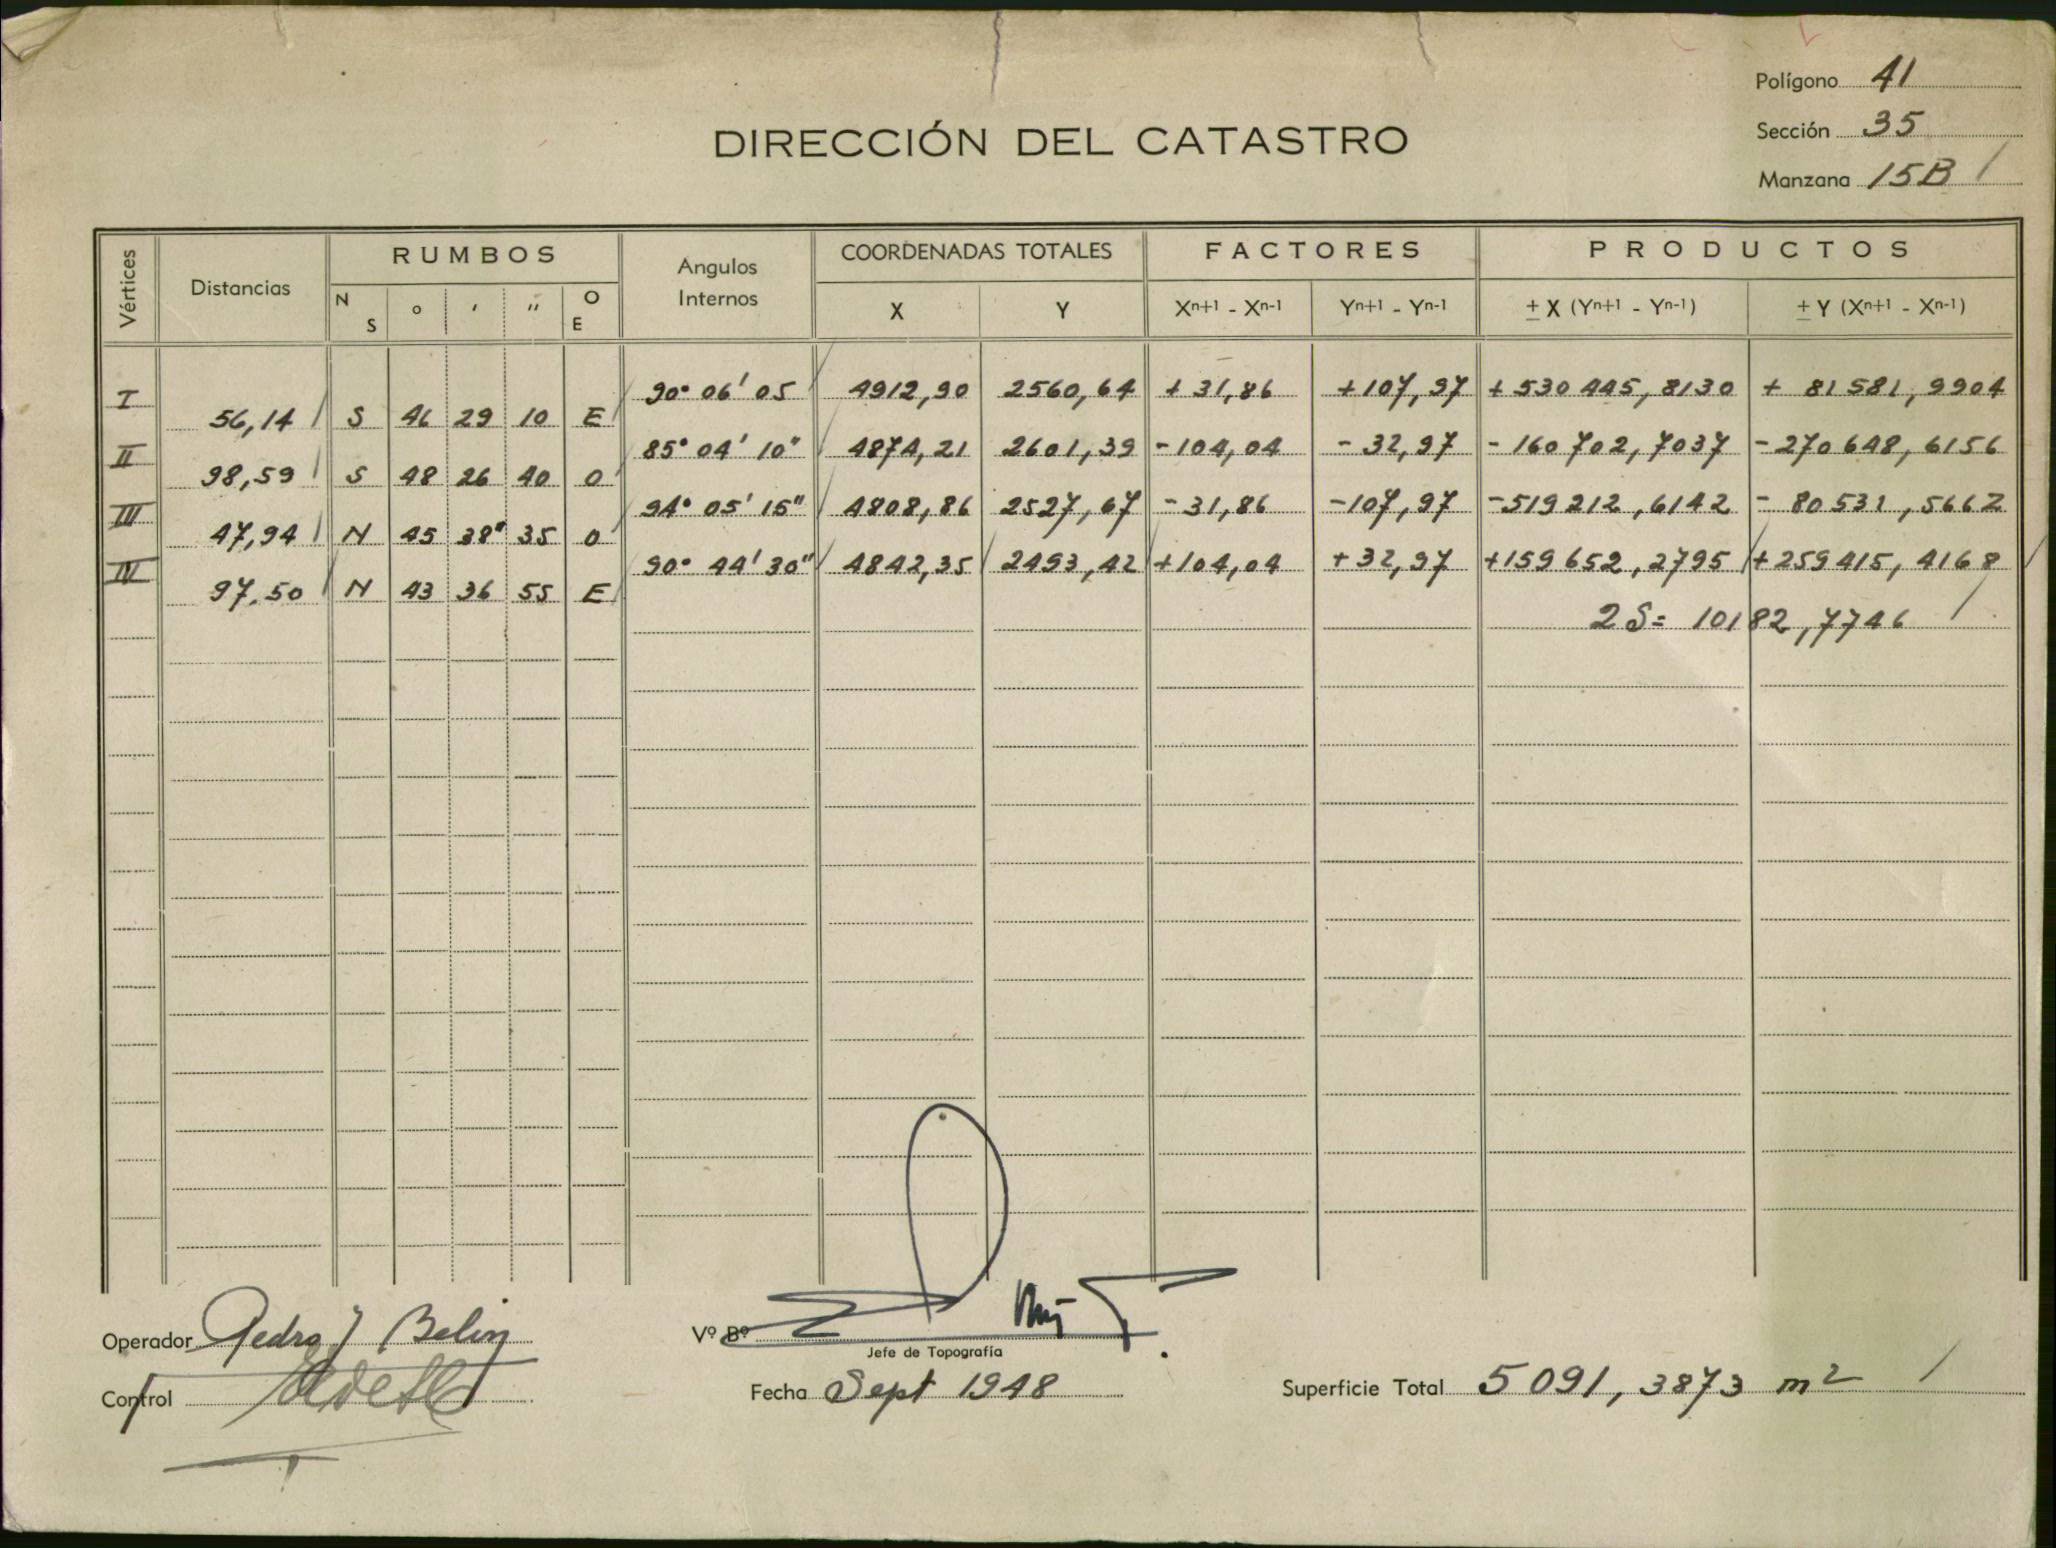 Polígono 41
Sección 35
Manzana 15B
DIRECCIÓN DEL CATASTRO
Vértices Distancias RUMBOS Angulos Internos COORDENADAS TOTALES FACTORES PRODUCTOS
N S ° ' '' O E X Y Xn+1 - Xn-1 Yn+1 - Yn-1 ± X (Yn+1 - Yn-1) ± Y (Xn+1 - Xn-1)
I 90° 06' 05 4912,90 2560,64 +31,86 +107,97 +530445,8130 + 81581,9904
56,14 S 46 29 10 E
II 85° 04' 10" 4874,21 2601,39 -104,04 -32,97 -160702,7037 -270648,6156
98,59 S 48 26 40 O
III 94° 05' 15" 4808,86 2527,67 -31,86 -107,97 -519212,6142 - 80531,5662
47,94 N 45 38" 35 O
IV 90° 44' 30" 4842,35 2493,42 +104,04 +32,97 +159652,2795 +259415,4168
97.50 N 43 36 55 E
2S= 10182,7746
Operador Pedro J Belin
Vº Bº
Jefe de Topografía
Control
Fecha Sept 1948
Superficie Total 5091,3873 m2